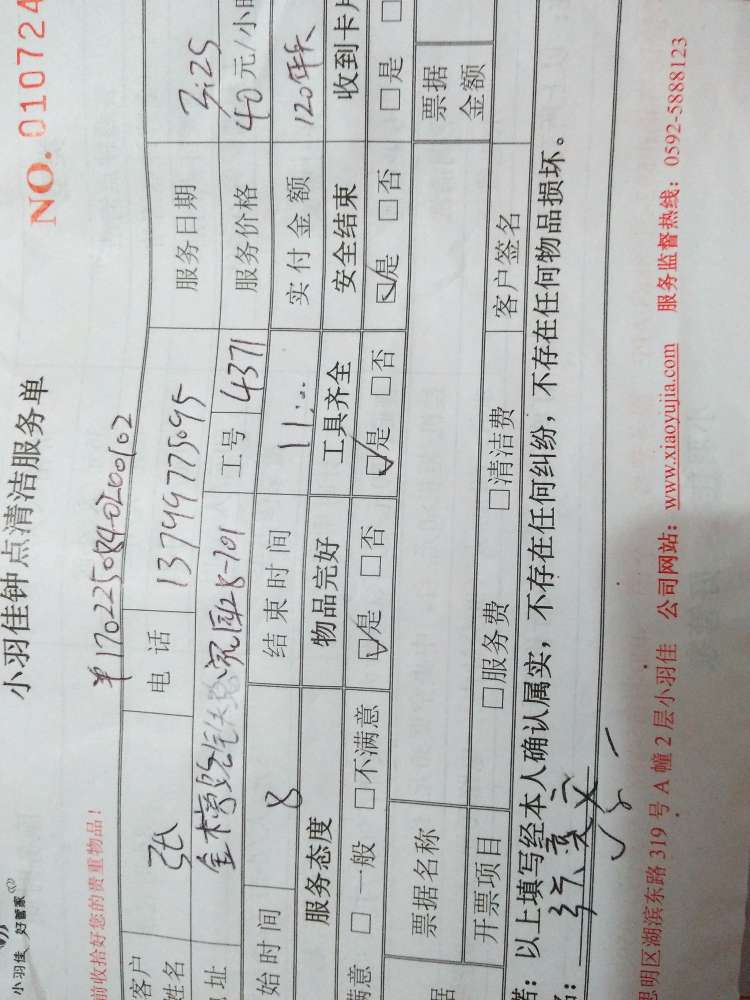 小羽佳 好管家
小羽佳钟点清洁服务单
NO. 010724
前收拾好您的贵重物品！
*170225084020002
客户姓名 张 电话 13799775095 服务日期 3.25
地址 8-701 工号 4371 服务价格 40元/小时
始时间 8 结束时间 11:00 实付金额 120
服务态度 物品完好 工具齐全 安全结束 收到卡片
满意 □一般 □不满意 ☑是 □否 ☑是 □否 ☑是 □否 □是 □
票据名称 票据金额
开票项目 □服务费 □清洁费 客户签名
诺：以上填写经本人确认属实，不存在任何纠纷，不存在任何物品损坏。
思明区湖滨东路 319 号 A 幢 2 层小羽佳 公司网站：www.xiaoyujia.com 服务监督热线：0592-5888123